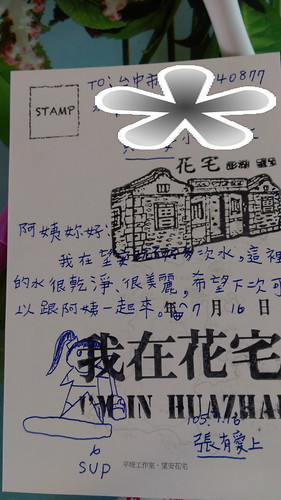 STAMP
TO: 台中市 40877
花宅
阿姨妳好:
我在望安 次水,這裡
的水很乾淨、很美麗,希望下次可
以跟阿姨一起來。
年 7 月 16 日
我在花宅
I'M IN HUAZHA
105.7.16
張有愛上
SUP
平埕工作室·望安花宅